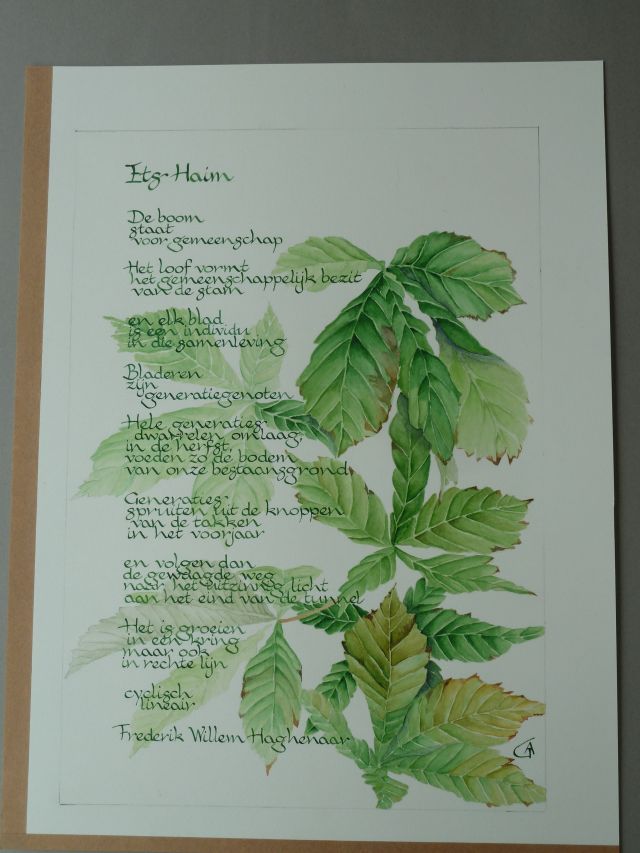 Ets Haim
De boom
staat
voor gemeenschap
Het loof vormt
het gemeenschappelijk bezit
van de stam
en elk blad
is een individu
in die samenleving
Bladeren
zijn
generatiegenoten
Hele generaties
dwarrelen omlaag,
in de herfst,
voeden zo de bodem
van onze bestaansgrond
Generaties
spruiten uit de knoppen
van de takken
in het voorjaar
en volgen dan
de gewaagde weg
naar het uitzinnig licht
aan het eind van de tunnel
Het is groeien
in een kring
maar ook
in rechte lijn
cyclisch
lineair
Frederik Willem Haghenaar